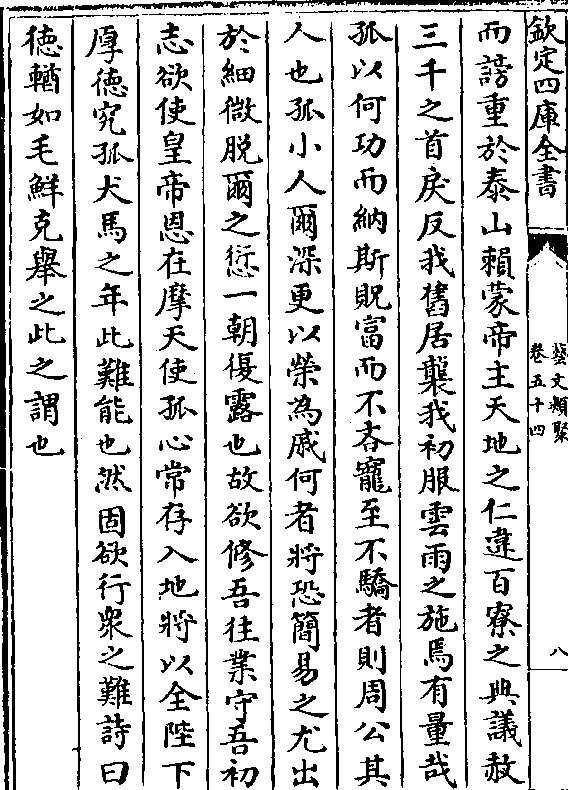 欽定四庫全書
藝文類聚
卷五十四
八
而謗重於泰山賴蒙帝主天地之仁違百寮之典議赦
三千之首戾反我舊居襲我初服雲雨之施焉有量哉
孤以何功而納斯貺富而不吝寵至不驕者則周公其
人也孤小人爾深更以榮為戚何者將恐簡易之尤出
於細微脫爾之愆一朝復露也故欲修吾往業守吾初
志欲使皇帝恩在摩天使孤心常存入地將以全陛下
厚德究孤犬馬之年此難能也然固欲行衆之難詩曰
德輶如毛鮮克舉之此之謂也